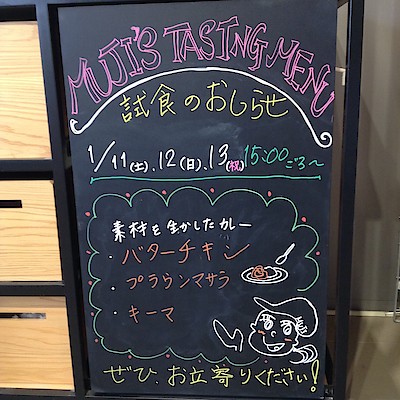 MUJI'S TASTNG MENU
試食のおしらせ
1/11(土)、12(日)、13(祝)15:00ごろ〜
素材を生かしたカレー
・バターチキン
・プラウンマサラ
・キーマ
ぜひ、お立寄りください!